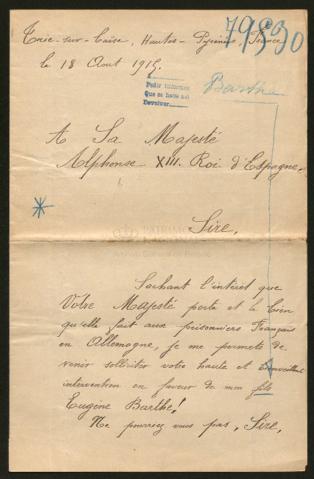 79530
Trie-sur-Baïse, Hautes-Pyrénées, France
le 18 Aout 1915.
Pedir informes
Que se haga así
Devolver
Barthe
A Sa Majesté
Alphonse XIII. Roi d'Espagne.
Sire,
Sachant l'intérêt que
Votre Majesté porte et le bien
qu'elle fait aux prisonniers Français
en Allemagne, je me permets de
venir solliciter votre haute et bienveillante
intervention en faveur de mon fils
Eugène Barthe!
Ne pourriez vous pas, Sire,